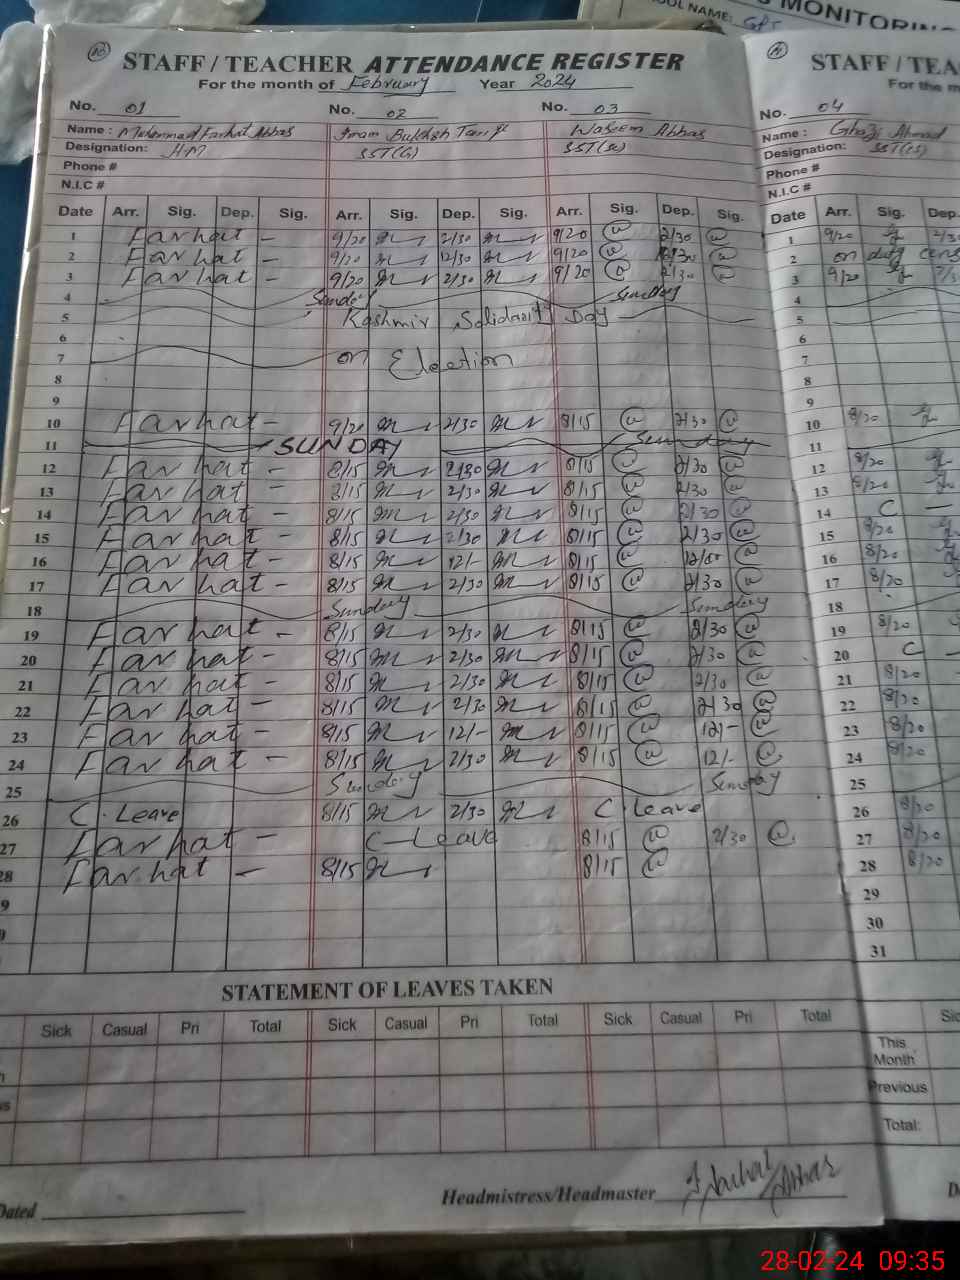 OOL NAME: GPS
S MONITORING
STAFF / TEACHER ATTENDANCE REGISTER
For the month of February Year 2024
No. 01 No. 02 No. 03
Name : Muhammad Farhat Abbas Imam Bakhsh Waseem Abbas
Designation: HM SST(G) SST(Sc)
Phone #
N.I.C #
Date Arr. Sig. Dep. Sig. Arr. Sig. Dep. Sig. Arr. Sig. Dep. Sig.
1 Farhat - 9/20 2/30 9/20 2/30
2 Farhat - 9/20 12/30 9/20 12/30
3 Farhat - 9/20 2/30 9/20 2/30
4 Sunday Sunday
5 Kashmir Solidarity Day
6
7 on Election
8
9
10 Farhat - 9/20 2/30 8/15 2/30
11 SUNDAY Sunday
12 Farhat - 8/15 2/30 8/15 2/30
13 Farhat - 8/15 2/30 8/15 2/30
14 Farhat - 8/15 2/30 8/15 2/30
15 Farhat - 8/15 2/30 8/15 2/30
16 Farhat - 8/15 12/- 8/15 12/00
17 Farhat - 8/15 2/30 8/15 2/30
18 Sunday Sunday
19 Farhat - 8/15 2/30 8/15 2/30
20 Farhat - 8/15 2/30 8/15 2/30
21 Farhat - 8/15 2/30 8/15 2/30
22 Farhat - 8/15 2/30 8/15 2/30
23 Farhat - 8/15 12/- 8/15 12/-
24 Farhat - 8/15 2/30 8/15 12/-
25 Sunday Sunday
26 C. Leave 8/15 2/30 C. Leave
27 Farhat - C-Leave 8/15 2/30
28 Farhat - 8/15 8/15
9
STATEMENT OF LEAVES TAKEN
Sick Casual Pri Total Sick Casual Pri Total Sick Casual Pri Total
Dated
Headmistress/Headmaster Farhat Abbas
STAFF / TEA
For the m
No. 04
Name : Ghazi Ahmad
Designation: SST(CS)
Phone #
N.I.C #
Date Arr. Sig. Dep.
1 9/20 2/30
2 on duty
3 9/20
4
5
6
7
8
9
10 8/20
11
12 8/20
13 8/20
14 C -
15 8/20
16 8/20
17 8/20
18
19 8/20
20 C -
21 8/20
22 8/20
23 8/20
24 8/20
25
26 8/20
27 8/20
28 8/20
29
30
31
Sic
This
Month
Previous
Total:
D
28-02-24 09:35